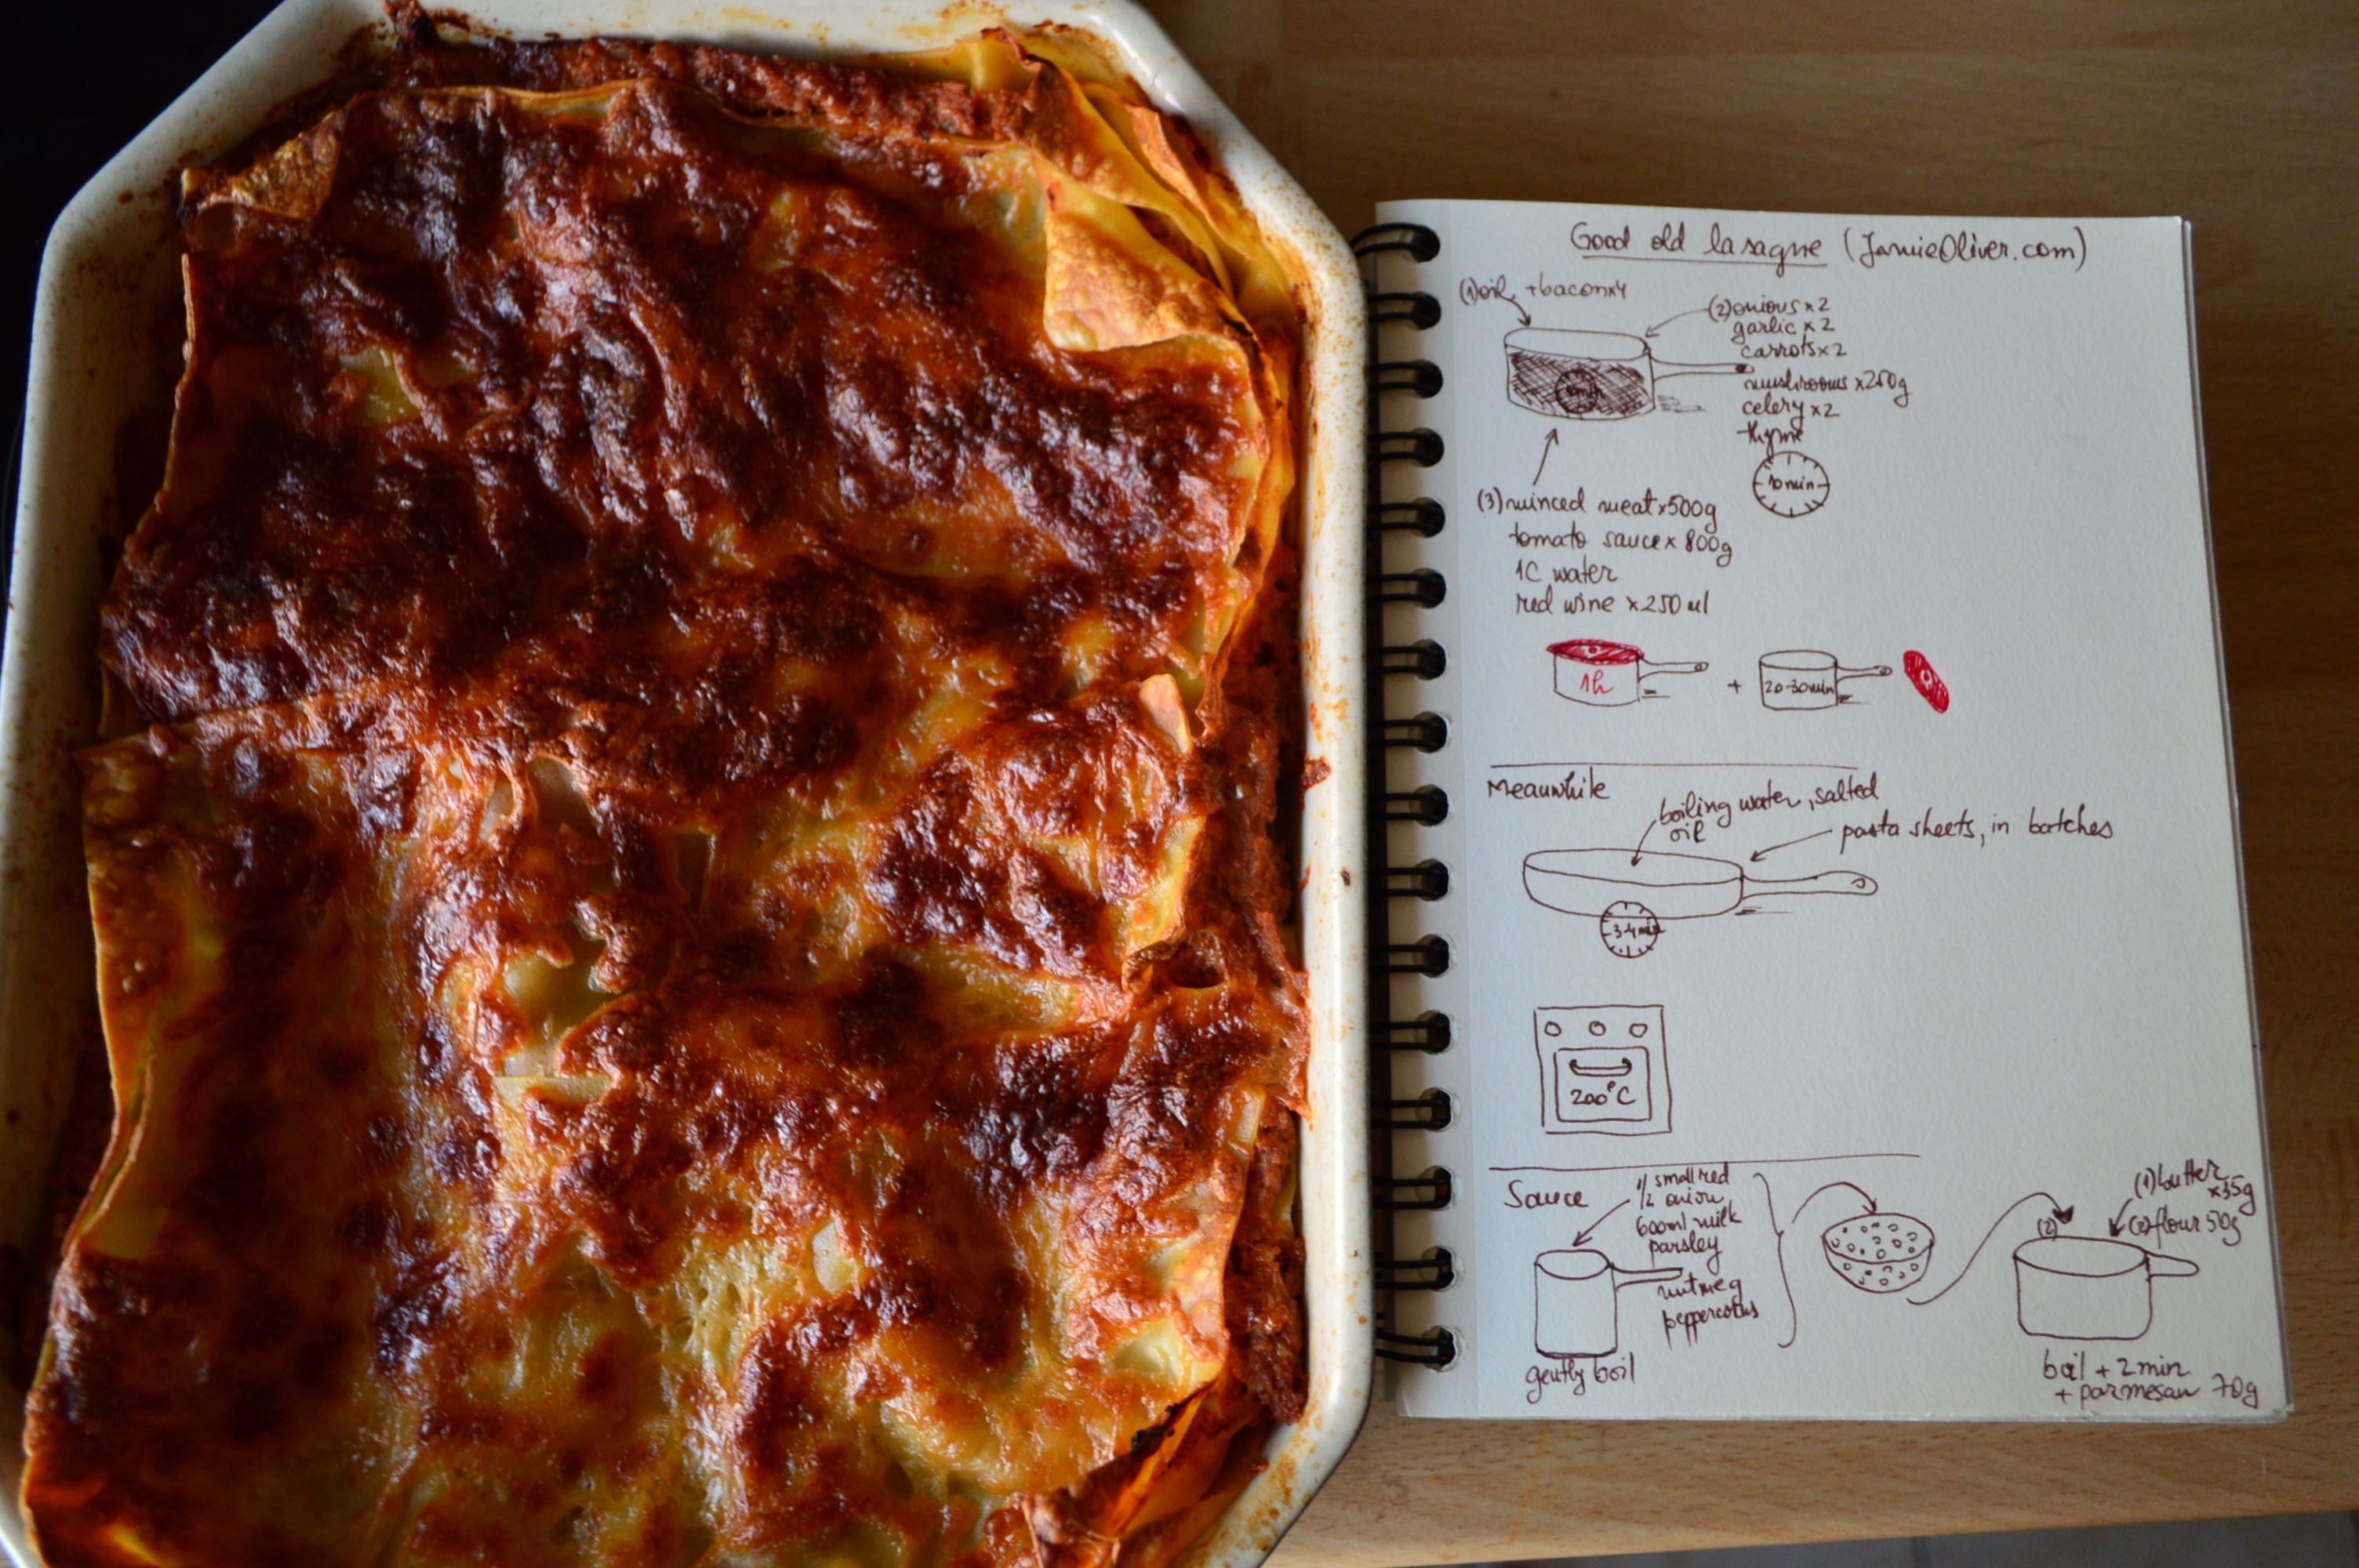 Good old lasagne (JamieOliver.com)
(1) oil, +bacon×4
(2) onions × 2
garlic × 2
carrots × 2
mushrooms × 250g
celery × 2
thyme
10 min
(3) minced meat × 500g
tomato sauce × 800g
1C water
red wine × 250 ml
1h
+
20-30min
Meanwhile
boiling water, salted
oil
pasta sheets, in batches
3-4 min
200°C
Sauce
1/2 small red
onion
600ml milk
parsley
nutmeg
peppercorns
gently boil
(2)
(1) butter
×35g
(2) flour 50g
boil + 2 min
+ parmesan 70g